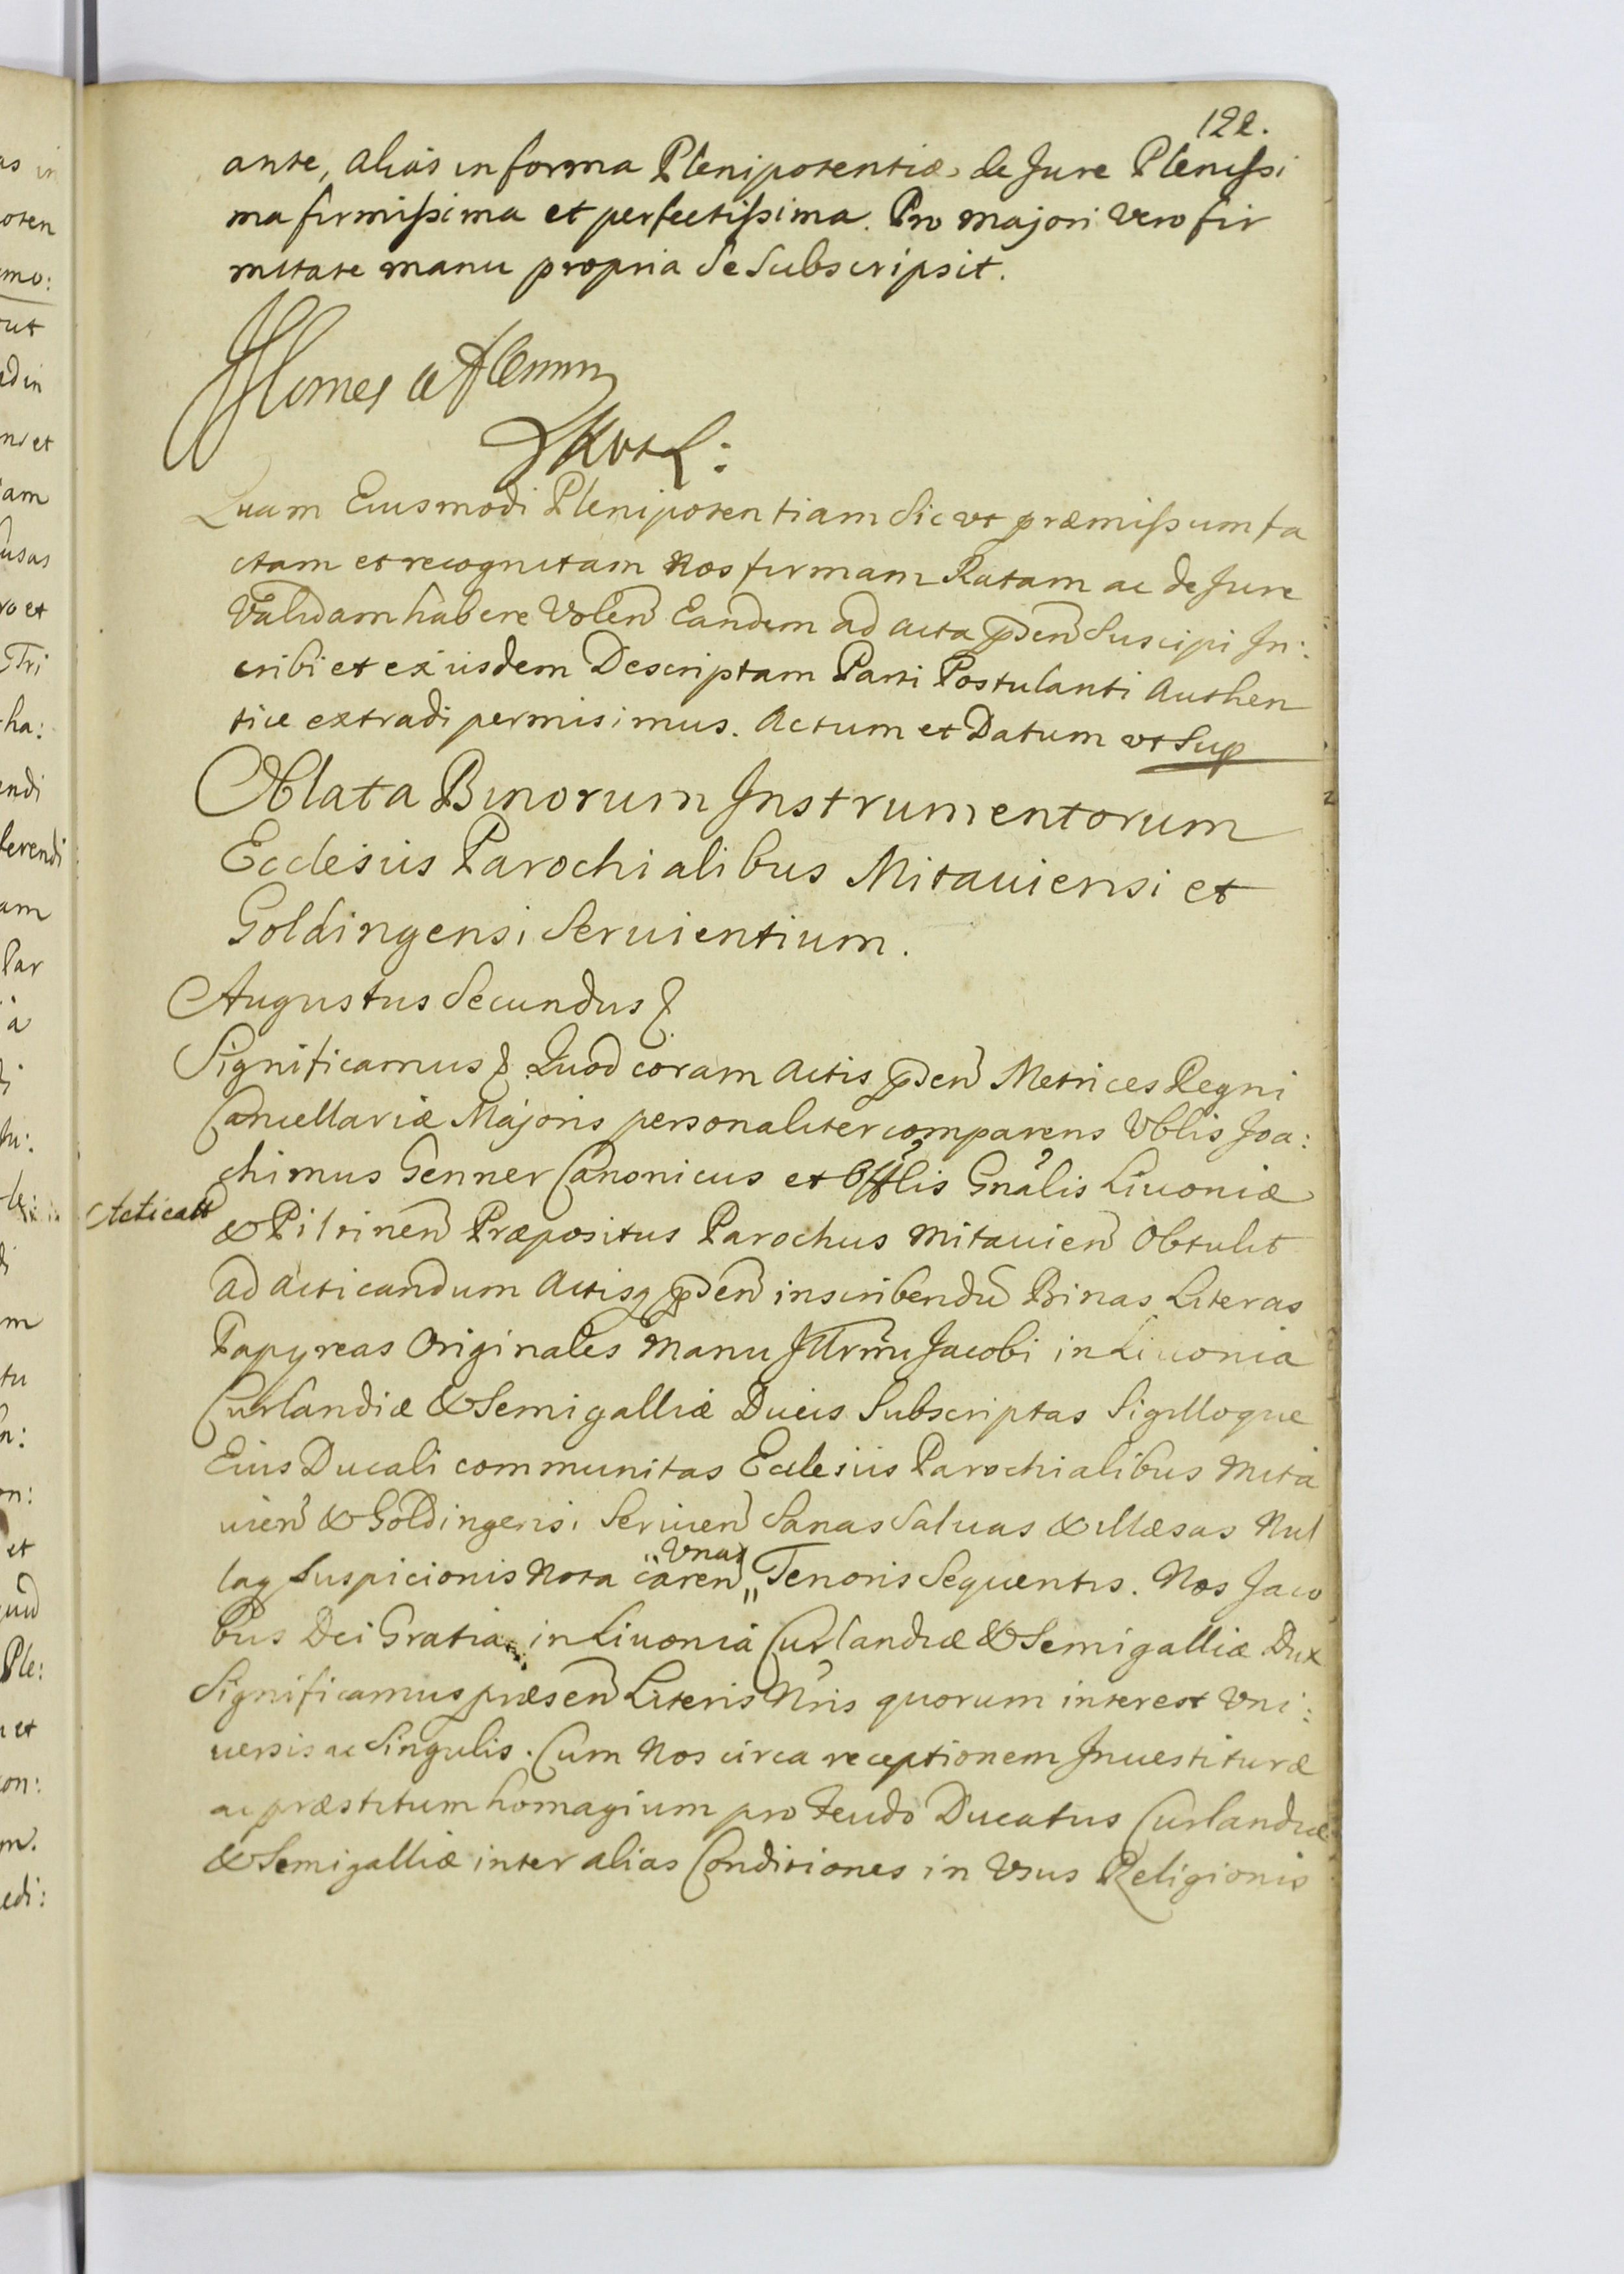 122.
ante, alias in forma Plenipotentiæ de Jure Plenissi
ma firmissima et perfectissima. Pro majori Vero fir
mitate manu propria se subscripsit.
Quam Eiusmodi Plenipotentiam Sic vt præmissum fa
ctam et recognitam Nos firmam Ratam ac de Jure
Validam habere Volen Eandem ad acta pden Suscipi In:
cribi et ex iisdem Descriptam Parti Postulanti Authen
tice extradi permisimus. Actum et Datum vt Sup
Oblata Binorum Instrumentorum
Ecclesiis Parochialibus Mitauiensi et
Goldingensi Seruientium.
Augustus Secundus
Significamus Quod coram Actis pden Metrices Regni
Cancellariæ Majoris personaliter comparens Vblis Joa:
chimus Genner Canonicus et Offlis Gnalis Liuoniæ
& Piltinen Præpositus Parochus Mitauien Obtulit
ad acticandum Actisq pden inscribendu Binas Literas
Papyreas Originales Manu Illrmi Jacobi in Liuonia
Curlandiæ & Semigalliæ Ducis Subscriptas Sigilloque
Eius Ducali communitas Ecclesiis Parochialibus Mita
uien & Goldingensi Seruien Sanas Saluas & illæsas Nul
laq Suspicionis Nota caren Vnas Tenoris Sequentis. Nos Jaco
bus Dei Gratia in Liuonia Curlandiæ & Semigalliæ Dux
Significamus præsen Literis Nris quorum interest Vni:
uersis ac Singulis. Cum Nos circa receptionem Inuestituræ
ac præstitum homagium pro feudo Ducatus Curlandiæ
& Semigalliæ inter alias Conditiones in Vsus Religionis